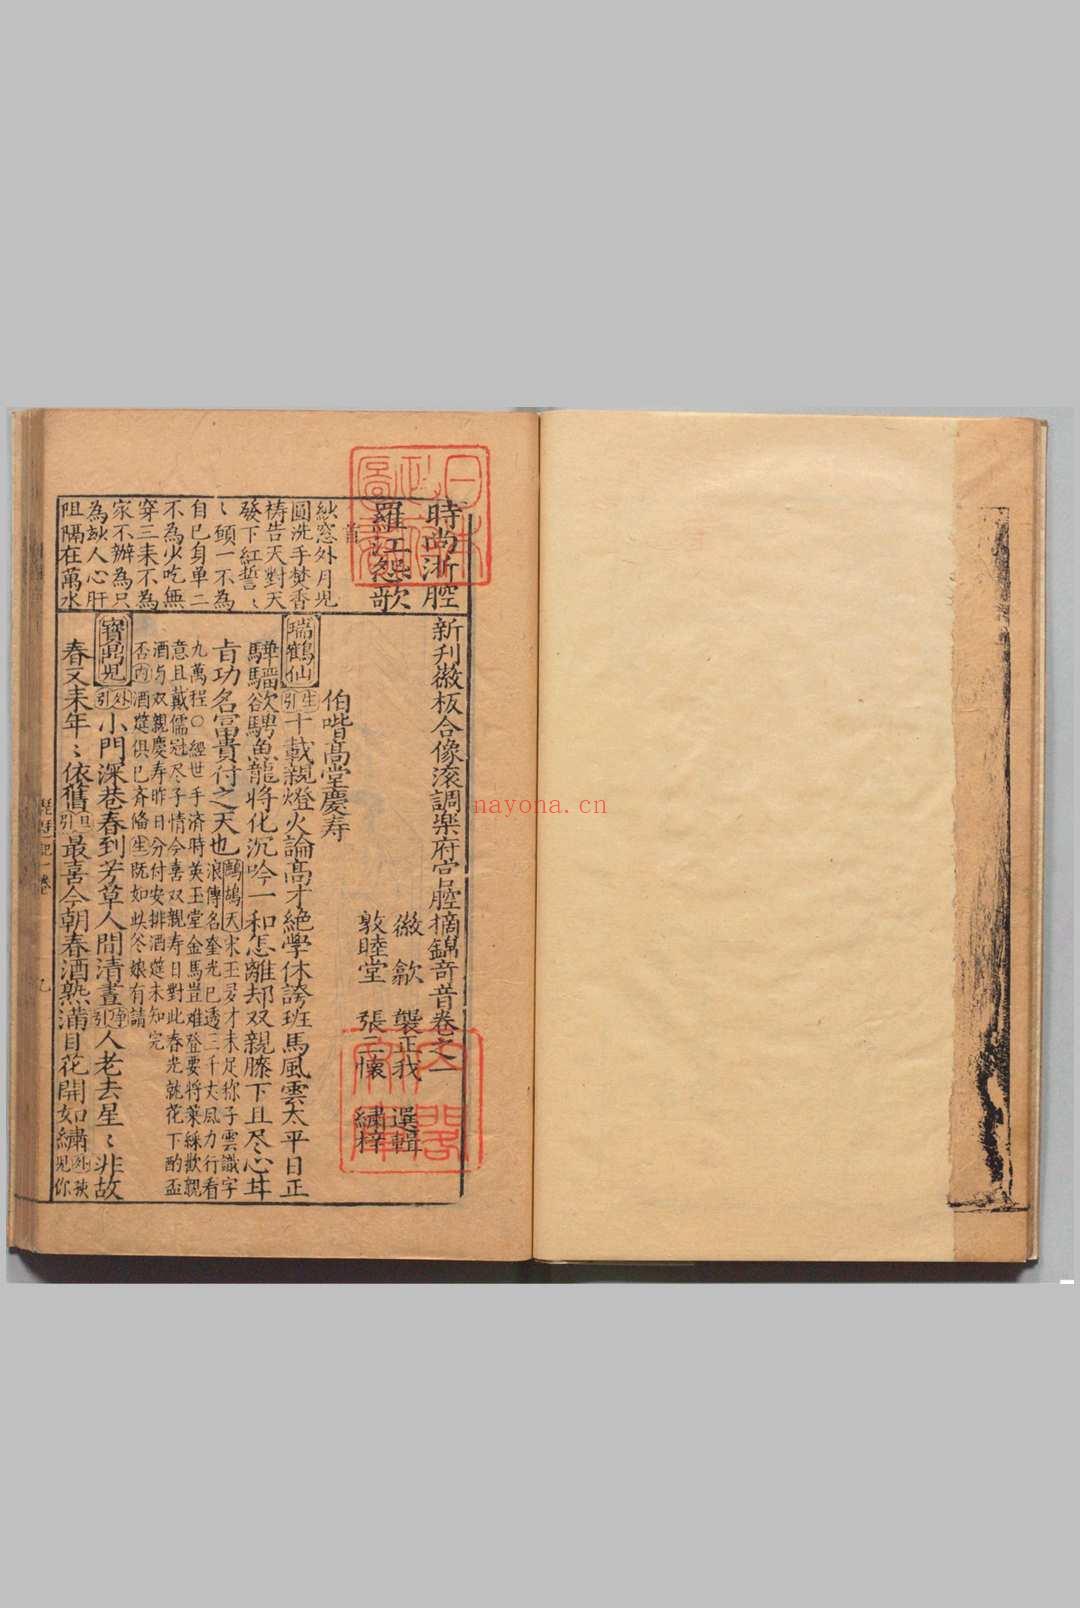 時尚浙腔
羅江怨歌
首
紗窓外月児
圓洗手焚香
祷告天對天
發下紅誓〻
〻頭一不為
自已身單二
不為少吃無
穿三耒不為
家不辦為只
為𫝆人心肝
阻隔在萬水
新刋徽板合像滚調楽府官腔摘錦竒音卷之一
徽歙 龔正我 選輯
敦睦堂 張三懷 繡梓
伯喈髙堂慶寿
瑞鶴仙 生引 十載親燈火論髙才絶學休誇班馬風雲太平日正
驊騮欲騁魚龍將化沉吟一和怎離却双親膝下且尽心甘
㫖功名富貴付之天也 鷓鴣天 宋玉多才未足称子雲識字
浪傳名奎光已透三千丈風力行看
九萬程○經世手済時英玉堂金馬豈难登要将莱綵歡親
意且戴儒冠尽子情今喜双親寿日對此春光就花下酌盃
酒与双親慶寿昨日分付安排酒筵未知完
否 内 酒筵俱已齐俻 生 既如此冬娘有請
寳鼎児 外引 小門深巷春到芳草人間清晝 净引 人老去星〻非故
春又耒年〻依舊 旦引 最喜今朝春酒熟满目花開如繡 外 孩児你
琵琶記 一卷
nayona.cn